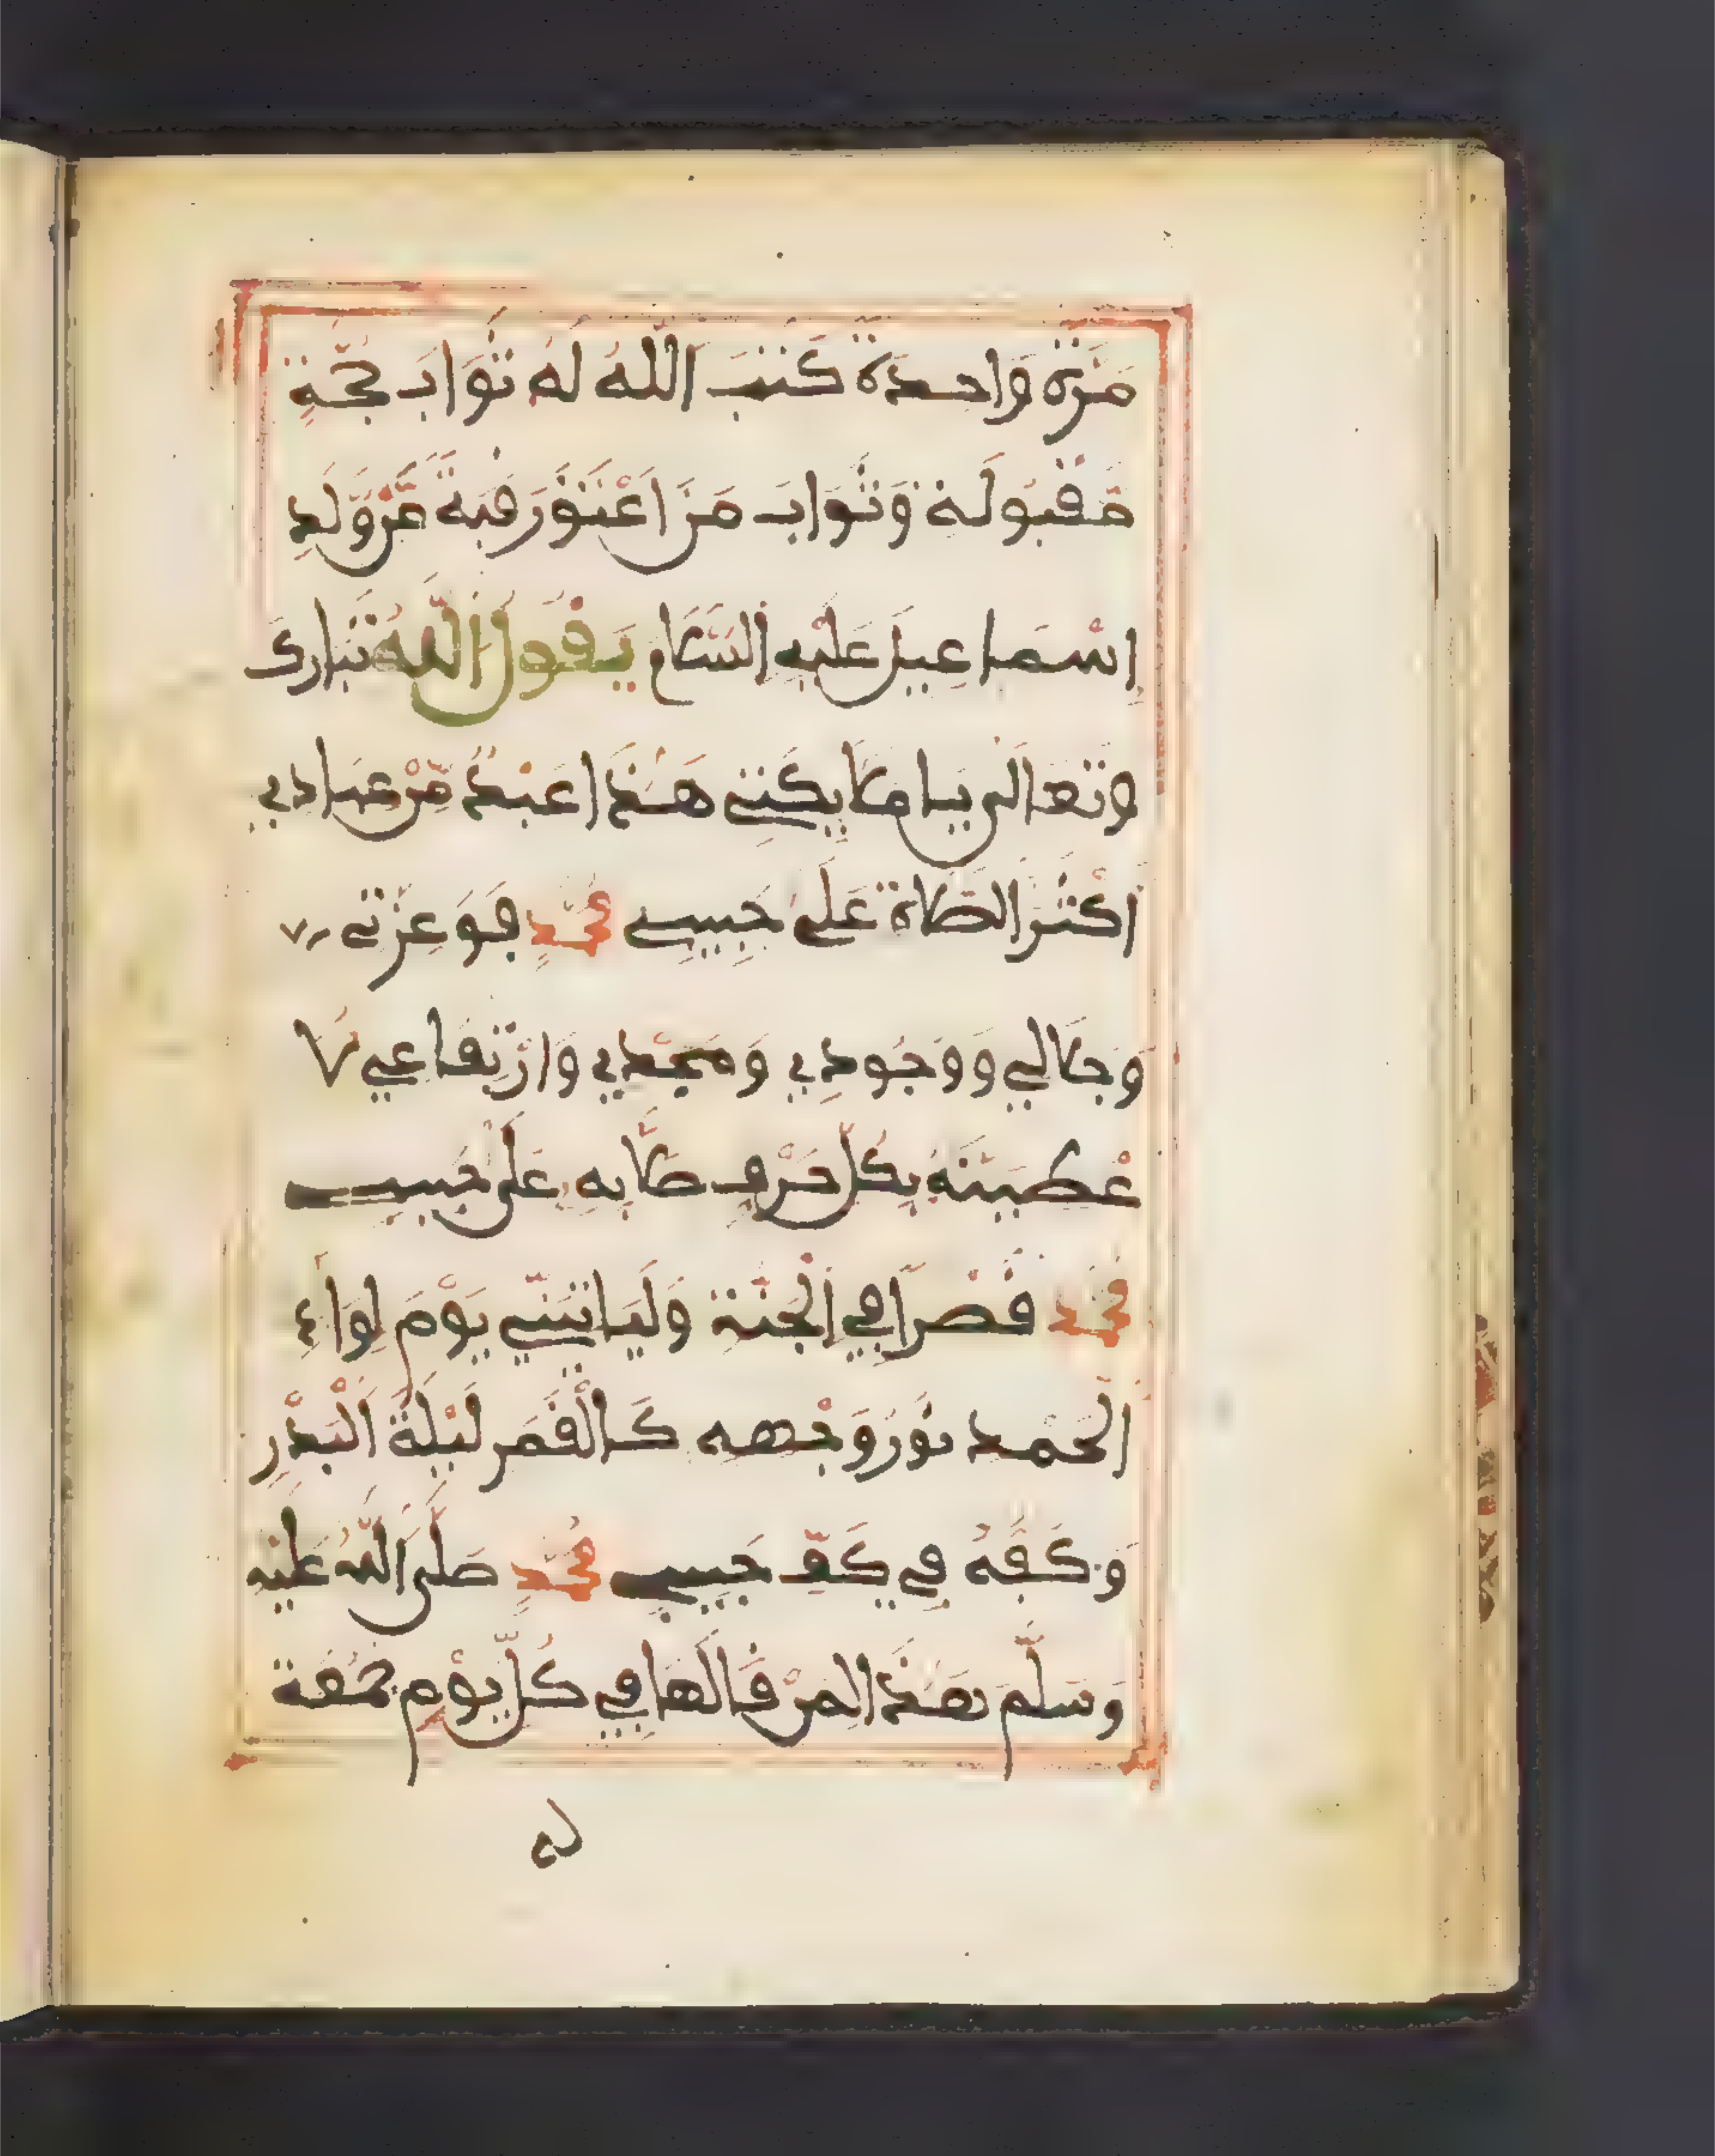 مَرَّةً وَاحِدَةً كَتَبَ اللَّهُ لَهُ ثَوَابَ حَجَّةٍ
مَّقْبُولَةٍ وَثَوَابَ مَنَ اَعْتَقَ رَقَبَةً مِّن وَّلَدِ
إِسْمَاعِيلَ عَلَيْهِ السَّلَام يَقُولُ اللَّهُ تَبَارَكَ
وَتَعَالَى يَا مَلَائِكَتِي هَٰذَا عَبْدٌ مِّنْ عِبَادِي
أَكْثَرَ الصَّلَاةَ عَلَى حَبِيبِي مُحَمَّدٍ فَوَعِزَّتِي
وَجَلَالِي وَوُجُودِي وَمَجْدِي وَارْتِفَاعِي لَأُ
عْطِيَنَّهُ بِكُلِّ حَرْفٍ صَلَّا بِهِ عَلَى حَبِيبِي
مُحَمَّد قَصْرًا فِي الْجَنَّةِ وَلَيَاتِيَنِّي يَوْمَ لِوَاءِ
الْحَمْدِ نُورُ وَجْهِهِ كَالْقَمَرِ لَيْلَةَ الْبَدْرِ
وَكَفُّهُ فِي كَفِّ حَبِيبِي مُحَمَّدٍ صَلَّى اللَّهُ عَلَيْهِ
وَسَلَّمَ هَٰذَا لِمَنْ قَالَهَا فِي كُلِّ يَوْمِ جُمُعَةٍ
له